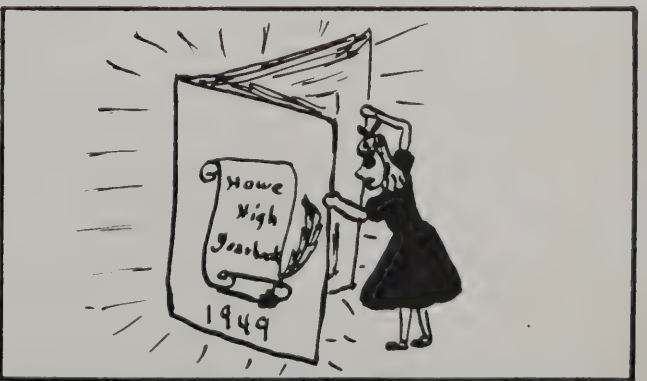 Howe
High
Yearbook
1949